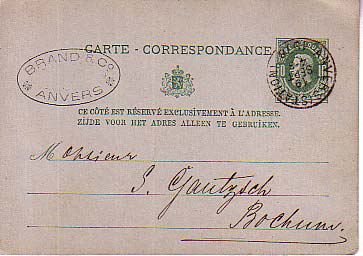 BRAND & Co
ANVERS
CARTE - CORRESPONDANCE
ANVERS (STATION)
CE CÔTÉ EST RÉSERVÉ EXCLUSIVEMENT À L'ADRESSE.
ZIJDE VOOR HET ADRES ALLEEN TE GEBRUIKEN.
Monsieur
Gautzsch
Bochum.